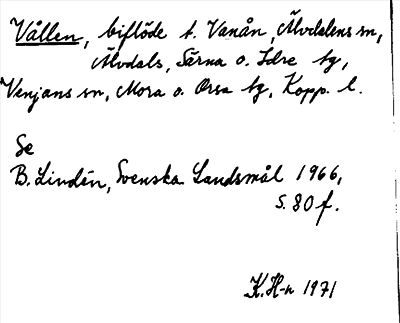 Vållen, biflöde t. Vanån, Älvdalens sn,
Älvdals, Särna o. Idre tg,
Venjans sn, Mora o. Orsa tg, Kopp. l.
Se
B. Lindén, Svenska Landsmål 1966,
s. 80 f.
K. H-n 1971